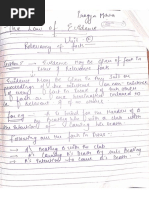 Pragya Mana
The Law of Evidence
Unit - 2
Relevancy of facts
Section 5 - Evidence may be given of facts in
Issue & Relevant facts
Evidence may be given in any suit or
proceedings of the existence or non-existence
of every fact in issue & of such other
facts as are hereinafter declared to
be relevant & of no others.
for the murder of B
with a club with
the intention of causing his death
following are the facts in Issue :-
A's beating B with the club
A's causing B's death by such beating
A's intention to cause B's death